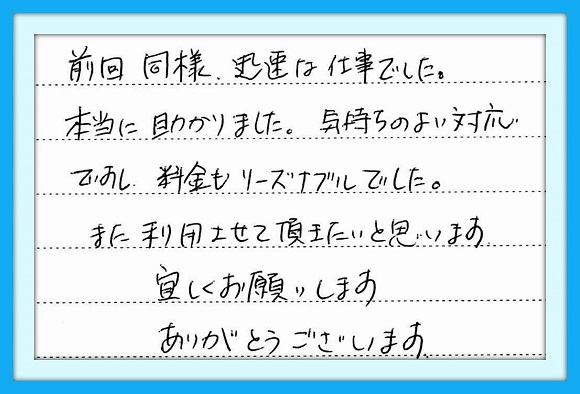 前回同様、迅速な仕事でした。
本当に助かりました。気持ちのよい対応
ですし、料金もリーズナブルでした。
また利用させて頂きたいと思います
宜しくお願いします
ありがとうございます。